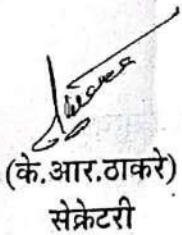 (के.आर.ठाकरे)
सेक्रेटरी